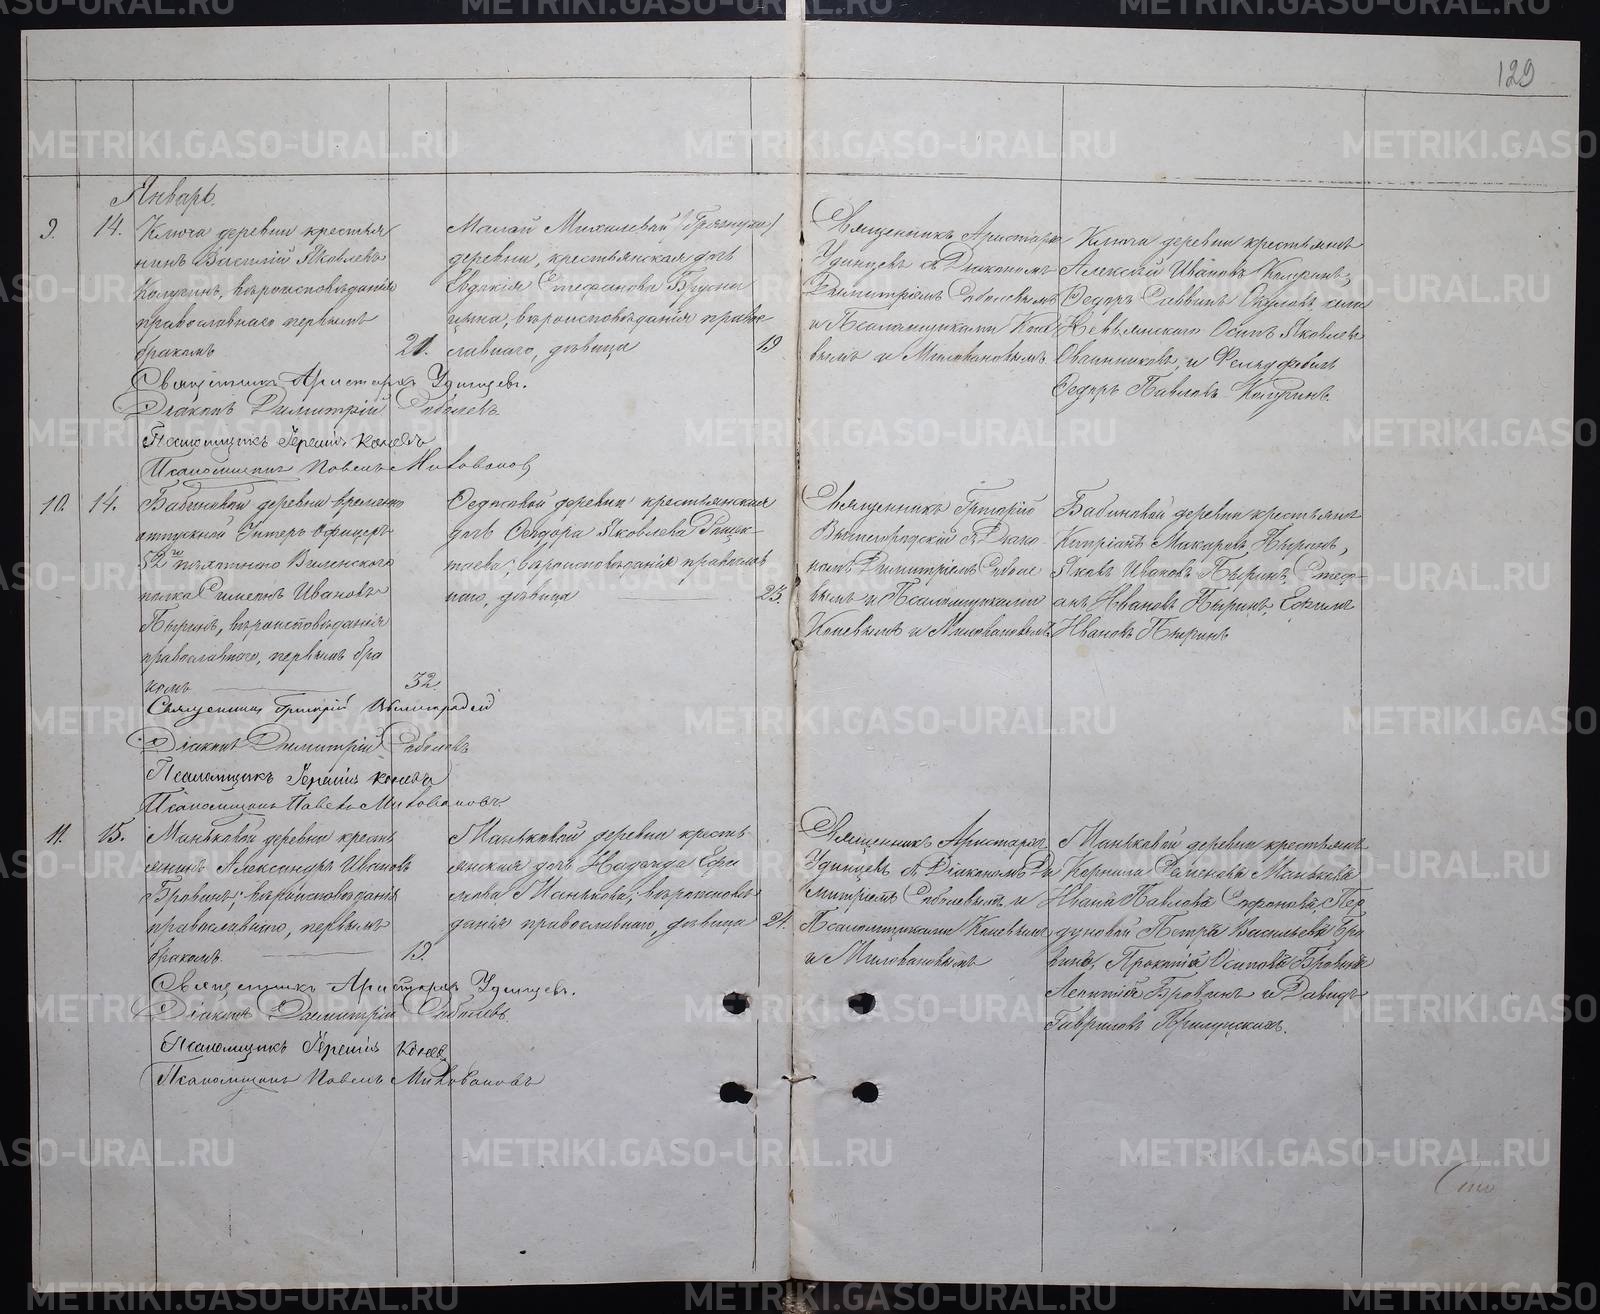 129
Январь.
9. 14. Ключа деревни крестья
нинъ Василій Яковлевъ
Калугинъ, вѣроисповѣданія
православнаго первымъ
бракомъ 21.
Малай Михалевой
деревни, крестьянская дочь
Евдокія Стефанова
вѣроисповѣданія правос
лавнаго, дѣвица 19
Священникъ Аристархъ
Удинцевъ съ Діакономъ
Димитріемъ Соболевымъ
и Псаломщиками Коне
вымъ и Миловановымъ
Ключа деревни крестьяне
Алексѣй Ивановъ Калугинъ,
Ѳедоръ Саввинъ
Невьянскаго Осипъ Яковлевъ
Овчинниковъ, и
Ѳедоръ Павловъ Калугинъ.
Священникъ Аристархъ Удинцевъ.
Діаконъ Димитрій Соболевъ
Псаломщикъ Іеремія Коневъ
Псаломщикъ Павелъ Миловановъ
10. 14. Бабиновой деревни временно
отпускной Унтеръ Офицеръ
52й пѣхотнаго Виленскаго
полка Симеонъ Ивановъ
Пыринъ, вѣроисповѣданія
православнаго, первымъ бра
комъ 32.
Ѳедосовой деревни крестьянская
дочь Ѳеодора Яковлева
вѣроисповѣданія православ
наго, дѣвица 23.
Священникъ Григорій
Вышегородскій съ Діако
номъ Димитріемъ Соболе
вымъ и Псаломщиками
Коневымъ и Миловановымъ
Бабиновой деревни крестьяне
Кипріанъ Макаровъ Пыринъ,
Яковъ Ивановъ Пыринъ, Стеф
анъ Ивановъ Пыринъ, Ефимъ
Ивановъ Пыринъ
Священникъ Григорій Вышегородскій
Діаконъ Димитрій Соболевъ
Псаломщикъ Іеремія Коневъ
Псаломщикъ Павелъ Миловановъ
11. 15. Маньковой деревни кресть
янинъ Александръ Ивановъ
Бровинъ, вѣроисповѣданія
православнаго, первымъ
бракомъ. 19.
Маньковой деревни кресть
янская дочь Надежда Ефи
мова Манькова, вѣроисповѣ
данія православнаго, дѣвица 24.
Священникъ Аристархъ
Удинцевъ съ Діакономъ Ди
митріемъ Соболевымъ и
Псаломщиками Коневымъ
и Миловановымъ
Маньковой деревни крестьяне
Корнила Семенова Манькова
Ивана Павлова Софонова, Пер
дуновой Петра Васильева Бро
вина, Прокопія Осипова Бровина
Леонтій Бровинъ и Давидъ
Гавриловъ Прилуцкихъ.
Священникъ Аристархъ Удинцевъ.
Діаконъ Димитрій Соболевъ.
Псаломщикъ Іеремія Коневъ
Псаломщикъ Павелъ Миловановъ
METRIKI.GASO-URAL.RU